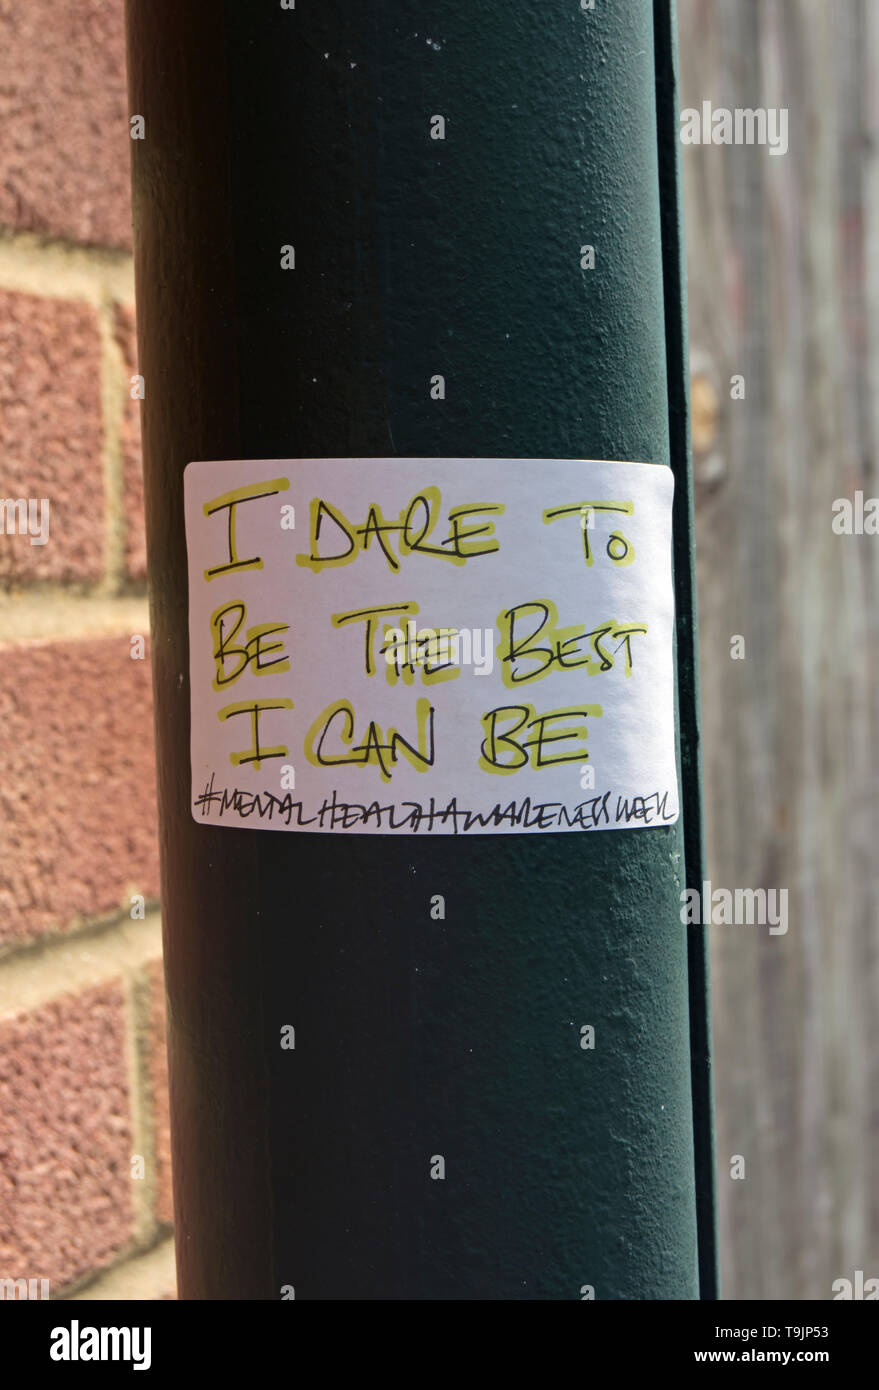 I DARE TO
BE THE BEST
I CAN BE
#MENTALHEALTHAWARENESSWEEK
alamy
alamy
alamy
Image ID: T9JP53
www.alamy.com